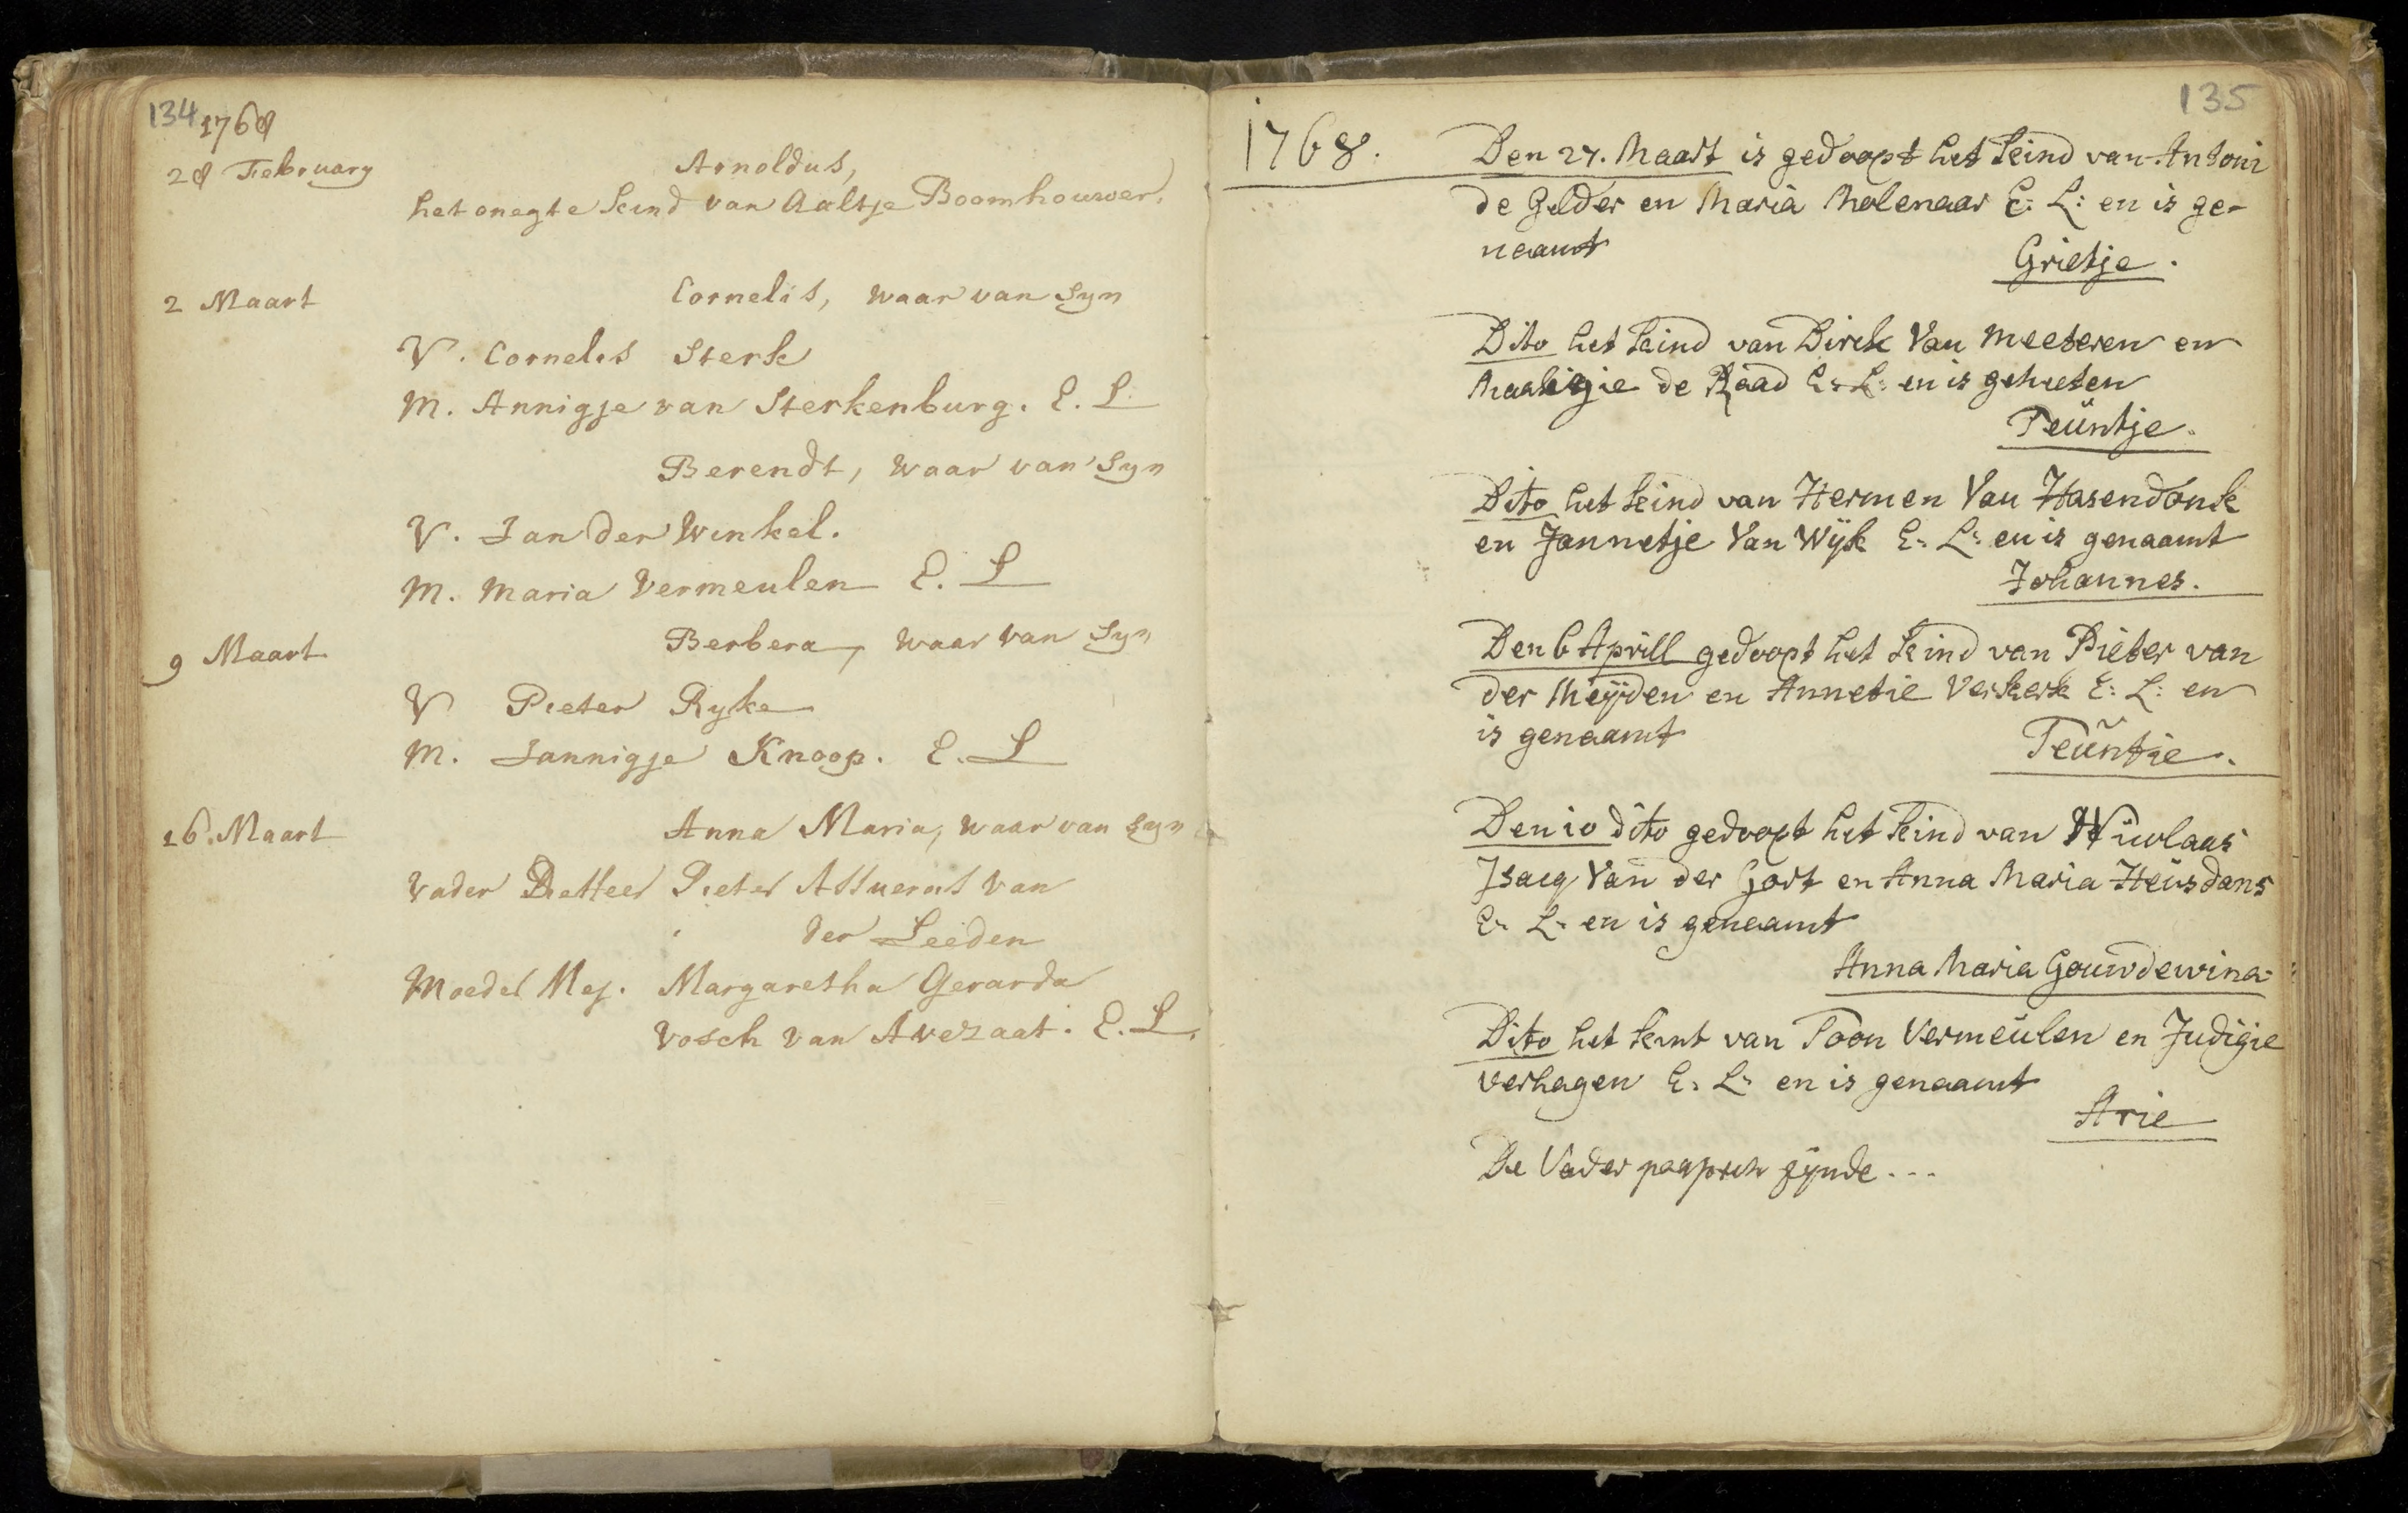 134
1768
28 February
Arnoldus,
het onegte kind van Aaltje Boomhouwer.
2 Maart
Cornelis, waar van Syn
V. Cornelis Sterk
M. Annigje van Sterkenburg. E. L.
Berendt, waar van Syn
V. Jan der Winkel.
M. Maria Vermeulen E. L
9 Maart
Berbera, waar van Syn
V Pieter Ryke
M. Jannigje Knoop. E. L
16. Maart
Anna Maria, waar van Syn
Vader Pieter Assuerus van
der Leeden
Moeder Mej. Margaretha Gerarda
Vosch van Avezaat. E. L.
135
1768.
Den 27. Maart is gedoopt het kind van Antoni
de Gelder en Maria Molenaar E: L: en is ge-
naamt
Grietje.
Dito het kind van Dirck Van Meeteren en
Maaligie de Raad E: L: en is geheeten
Teüntje.
Dito het kind van Hermen Van Hasendonk
en Jannetje Van Wijk E: L: en is genaamt
Johannes.
Den 6 Aprill gedoopt het kind van Pieter van
der Meÿden en Annetie Verkerk E: L: en
is genaamt
Teüntie.
Den 10 dito gedoopt het kind van
Isacq Van der Gort en Anna Maria Heusdans
E: L: en is genaamt
Anna Maria Gouwdewina
Dito het kint van Toon Vermeülen en Judigie
verhagen E: L: en is genaamt
Arie
De Vader paapsch zÿnde...